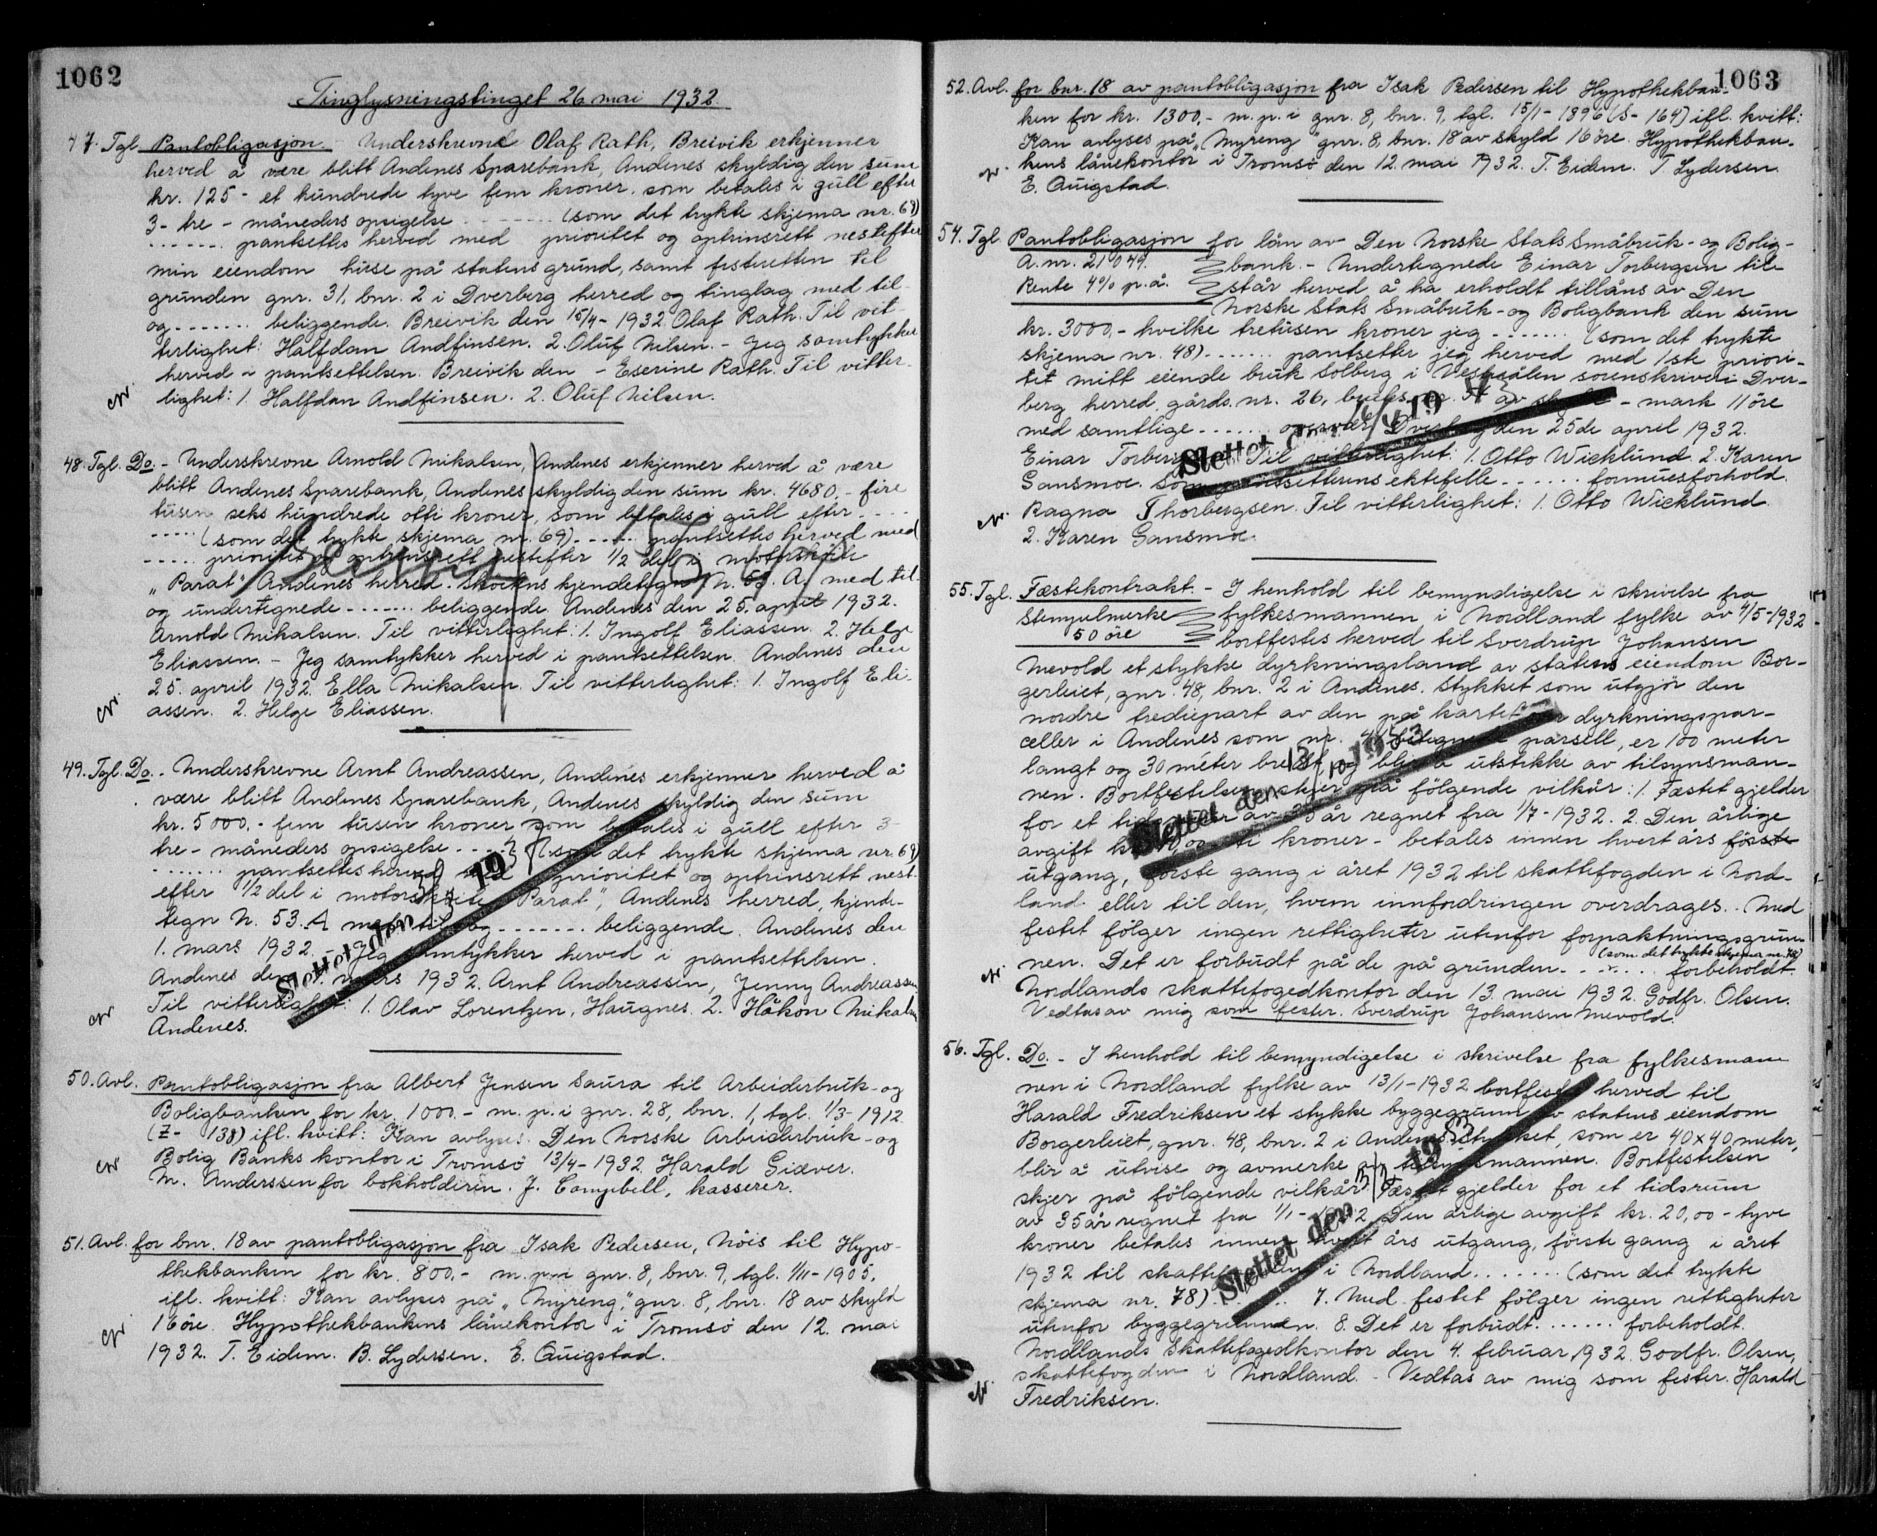 1062
Tinglysningstinget 26 mai 1932
47. Tgl. Pantobligasjon. Underskrevne Olaf Rath, Breivik erkjenner
herved å være blitt Andenes Sparebank, Andenes skyldig den sum
kr. 125 - et hundrede tyve fem kroner, som betales i gull efter
3 - tre - måneders opsigelse ....... (som det trykte skjema nr. 69)
....... pantsettes herved med prioritet og optrinsrett nestefter
min eiendom huse på statens grund, samt festeretten til
grunden gnr. 31, bnr. 2 i Dverberg herred og tinglag med til-
og ....... beliggende. Breivik den 15/4-1932. Olaf Rath. Til vit-
terlighet: Halfdan Andfinsen. 2. Oluf Nilsen. - Jeg samtykker
herved i pantsettelsen. Breivik den - Eserine Rath. Til vitter-
lighet: 1. Halfdan Andfinsen. 2. Oluf Nilsen.
48. Tgl. Do. - Underskrevne Arnold Mikalsen, Andenes erkjenner herved å være
blitt Andenes Sparebank, Andenes skyldig den sum kr. 4680,- fire
tusen seks hundrede otti kroner, som betales i gull efter ....
..... (som det trykte skjema nr. 69) ..... pantsettes herved med
..... prioritet og optrinsrett nestefter 1/2 del i motorskøite
"Parat" Andenes herred. Skøitens kjendetegn N. 53. A. med til-
og undertegnede ....... beliggende. Andenes den 25. april 1932.
Arnold Mikalsen. Til vitterlighet: 1. Ingolf Eliassen. 2. Helge
Eliassen. - Jeg samtykker herved i pantsettelsen. Andenes den
25. april 1932. Ella Mikalsen. Til vitterlighet: 1. Ingolf Eli-
assen. 2. Helge Eliassen.
49. Tgl. Do. - Underskrevne Arnt Andreassen, Andenes erkjenner herved å
være blitt Andenes Sparebank, Andenes skyldig den sum
kr. 5000.- fem tusen kroner som betales i gull efter 3-
tre - måneders opsigelse ..... (som det trykte skjema nr. 69)
....... pantsettes herved med prioritet og optrinsrett nest-
efter 1/2 del i motorskøite "Parat", Andenes herred, kjende-
tegn N. 53. A med til og ....... beliggende. Andenes den
1. mars 1932. - Jeg samtykker herved i pantsettelsen.
Andenes den 1. mars 1932. Arnt Andreassen, Jenny Andreassen
Til vitterlighet: 1. Olav Lorentzen, Haugnes. 2. Håkon Mikalsen
Andenes.
Slettet den 19
50. Avl. Pantobligasjon fra Albert Jensen Saura til Arbeiderbruk- og
Boligbanken for kr. 1000.- m. p. i gnr. 28, bnr. 1, tgl. 1/3-1912
(Z- 138) ifl. kvitt: Kan avlyses. Den Norske Arbeiderbruk- og
Bolig Banks kontor i Tromsø 13/4-1932. Harald Giæver.
M. Anderssen for bokholderen. J. Campbell, kasserer.
51. Avl. for bnr. 18 av pantobligasjon fra Isak Pedersen, Nöis til Hypo-
thekbanken for kr. 800.- m. p. i gnr. 8, bnr. 9, tgl. 1/11-1905.
ifl. kvitt: Kan avlyses på "Myreng", gnr. 8, bnr. 18 av skyld
16 øre. Hypothekbankens lånekontor i Tromsø den 12. mai
1932. T. Eidem. B. Lydersen. E. Quigstad.
1063
52. Avl. for bnr. 18 av pantobligasjon fra Isak Pedersen til Hypothekban-
ken for kr. 1300,- m. p. i gnr. 8, bnr. 9, tgl. 15/1-1896 (S- 164) ifl. kvitt:
Kan avlyses på "Myreng" gnr. 8, bnr. 18 av skyld 16 øre. Hypothekban-
kens lånekontor i Tromsø den 12. mai 1932. T. Eidem. T. Lydersen.
E. Quigstad.
54. Tgl. Pantobligasjon for lån av Den Norske Stats Småbruk- og Bolig-
A. nr. 21049. bank. - Undertegnede Einar Torbergsen til-
Rente 4% p. å. står herved å ha erholdt tillåns av Den
Norske Stats Småbruk- og Boligbank den sum
kr. 3000,- hvilke tretusen kroner jeg ....... (som det trykte
skjema nr. 48) ....... pantsetter jeg herved med 1ste priori-
tet mitt eiende bruk Solberg i Vesterålen sorenskriveri Dver-
berg herred, gårds. nr. 26, bruks nr. av skyld - mark 11 øre
med samtlige ....... den 25de april 1932.
Einar Torbergsen. Til vitterlighet: 1. Otto Wicklund. 2. Karen
Gansmoe. Som pantsetterens ektefelle ....... formuesforhold.
Ragna Thorbergsen. Til vitterlighet: 1. Otto Wicklund.
2. Karen Gansmoe.
Slettet den 19
55. Tgl. Fæstekontrakt. - I henhold til bemyndigelse i skrivelse fra
Stempelmerke fylkesmannen i Nordland fylke av 4/5-1932
50 øre bortfestes herved til Sverdrup Johansen
Mevold et stykke dyrkningsland av statens eiendom Bor-
gerleiet, gnr. 48, bnr. 2 i Andenes. Stykket som utgjør den
nordre trediepart av den på kartet over dyrkningspar-
celler i Andenes som nr. betegnede parsell, er 100 meter
langt og 30 meter bredt og blir å utstikke av tilsynsman-
nen. Bortfestelsen skjer på følgende vilkår: 1. Fæstet gjelder
for et tidsrum av år regnet fra 1/7-1932. 2. Den årlige
avgift kr. kroner - betales innen hvert års første
utgang, første gang i året 1932 til skattefogden i Nord-
land eller til den, hvem innfordringen overdrages. Med
festet følger ingen rettigheter utenfor forpaktningsgrun-
nen. Det er forbudt på de på grunden ....... (som det trykte skjema nr. 78) forbeholdt.
Nordlands skattefogedkontor den 13. mai 1932. Godfr. Olsen.
Vedtas av mig som fester. Sverdrup Johansen Mevold.
Slettet den 1953
56. Tgl. Do. - I henhold til bemyndigelse i skrivelse fra fylkesman-
nen i Nordland fylke av 13/1-1932 bortfestes herved til
Harald Fredriksen et stykke byggegrunn av statens eiendom
Borgerleiet, gnr. 48, bnr. 2 i Andenes. Stykket, som er 40 x 40 meter,
blir å utvise og avmerke av tilsynsmannen. Bortfestelsen
skjer på følgende vilkår: Fæstet gjelder for et tidsrum
av 35 år regnet fra 1/1-1932. Den årlige avgift kr. 20,00 - tyve
kroner betales innen hvert års utgang, første gang i året
1932 til skattefogden i Nordland ....... (som det trykte
skjema nr. 78) ....... 7. Med festet følger ingen rettigheter
utenfor byggegrunnen. 8. Det er forbudt ....... forbeholdt.
Nordlands Skattefogedkontor den 4. februar 1932. Godfr. Olsen,
skattefogden i Nordland. - Vedtas av mig som fester. Harald
Fredriksen.
Slettet den 19